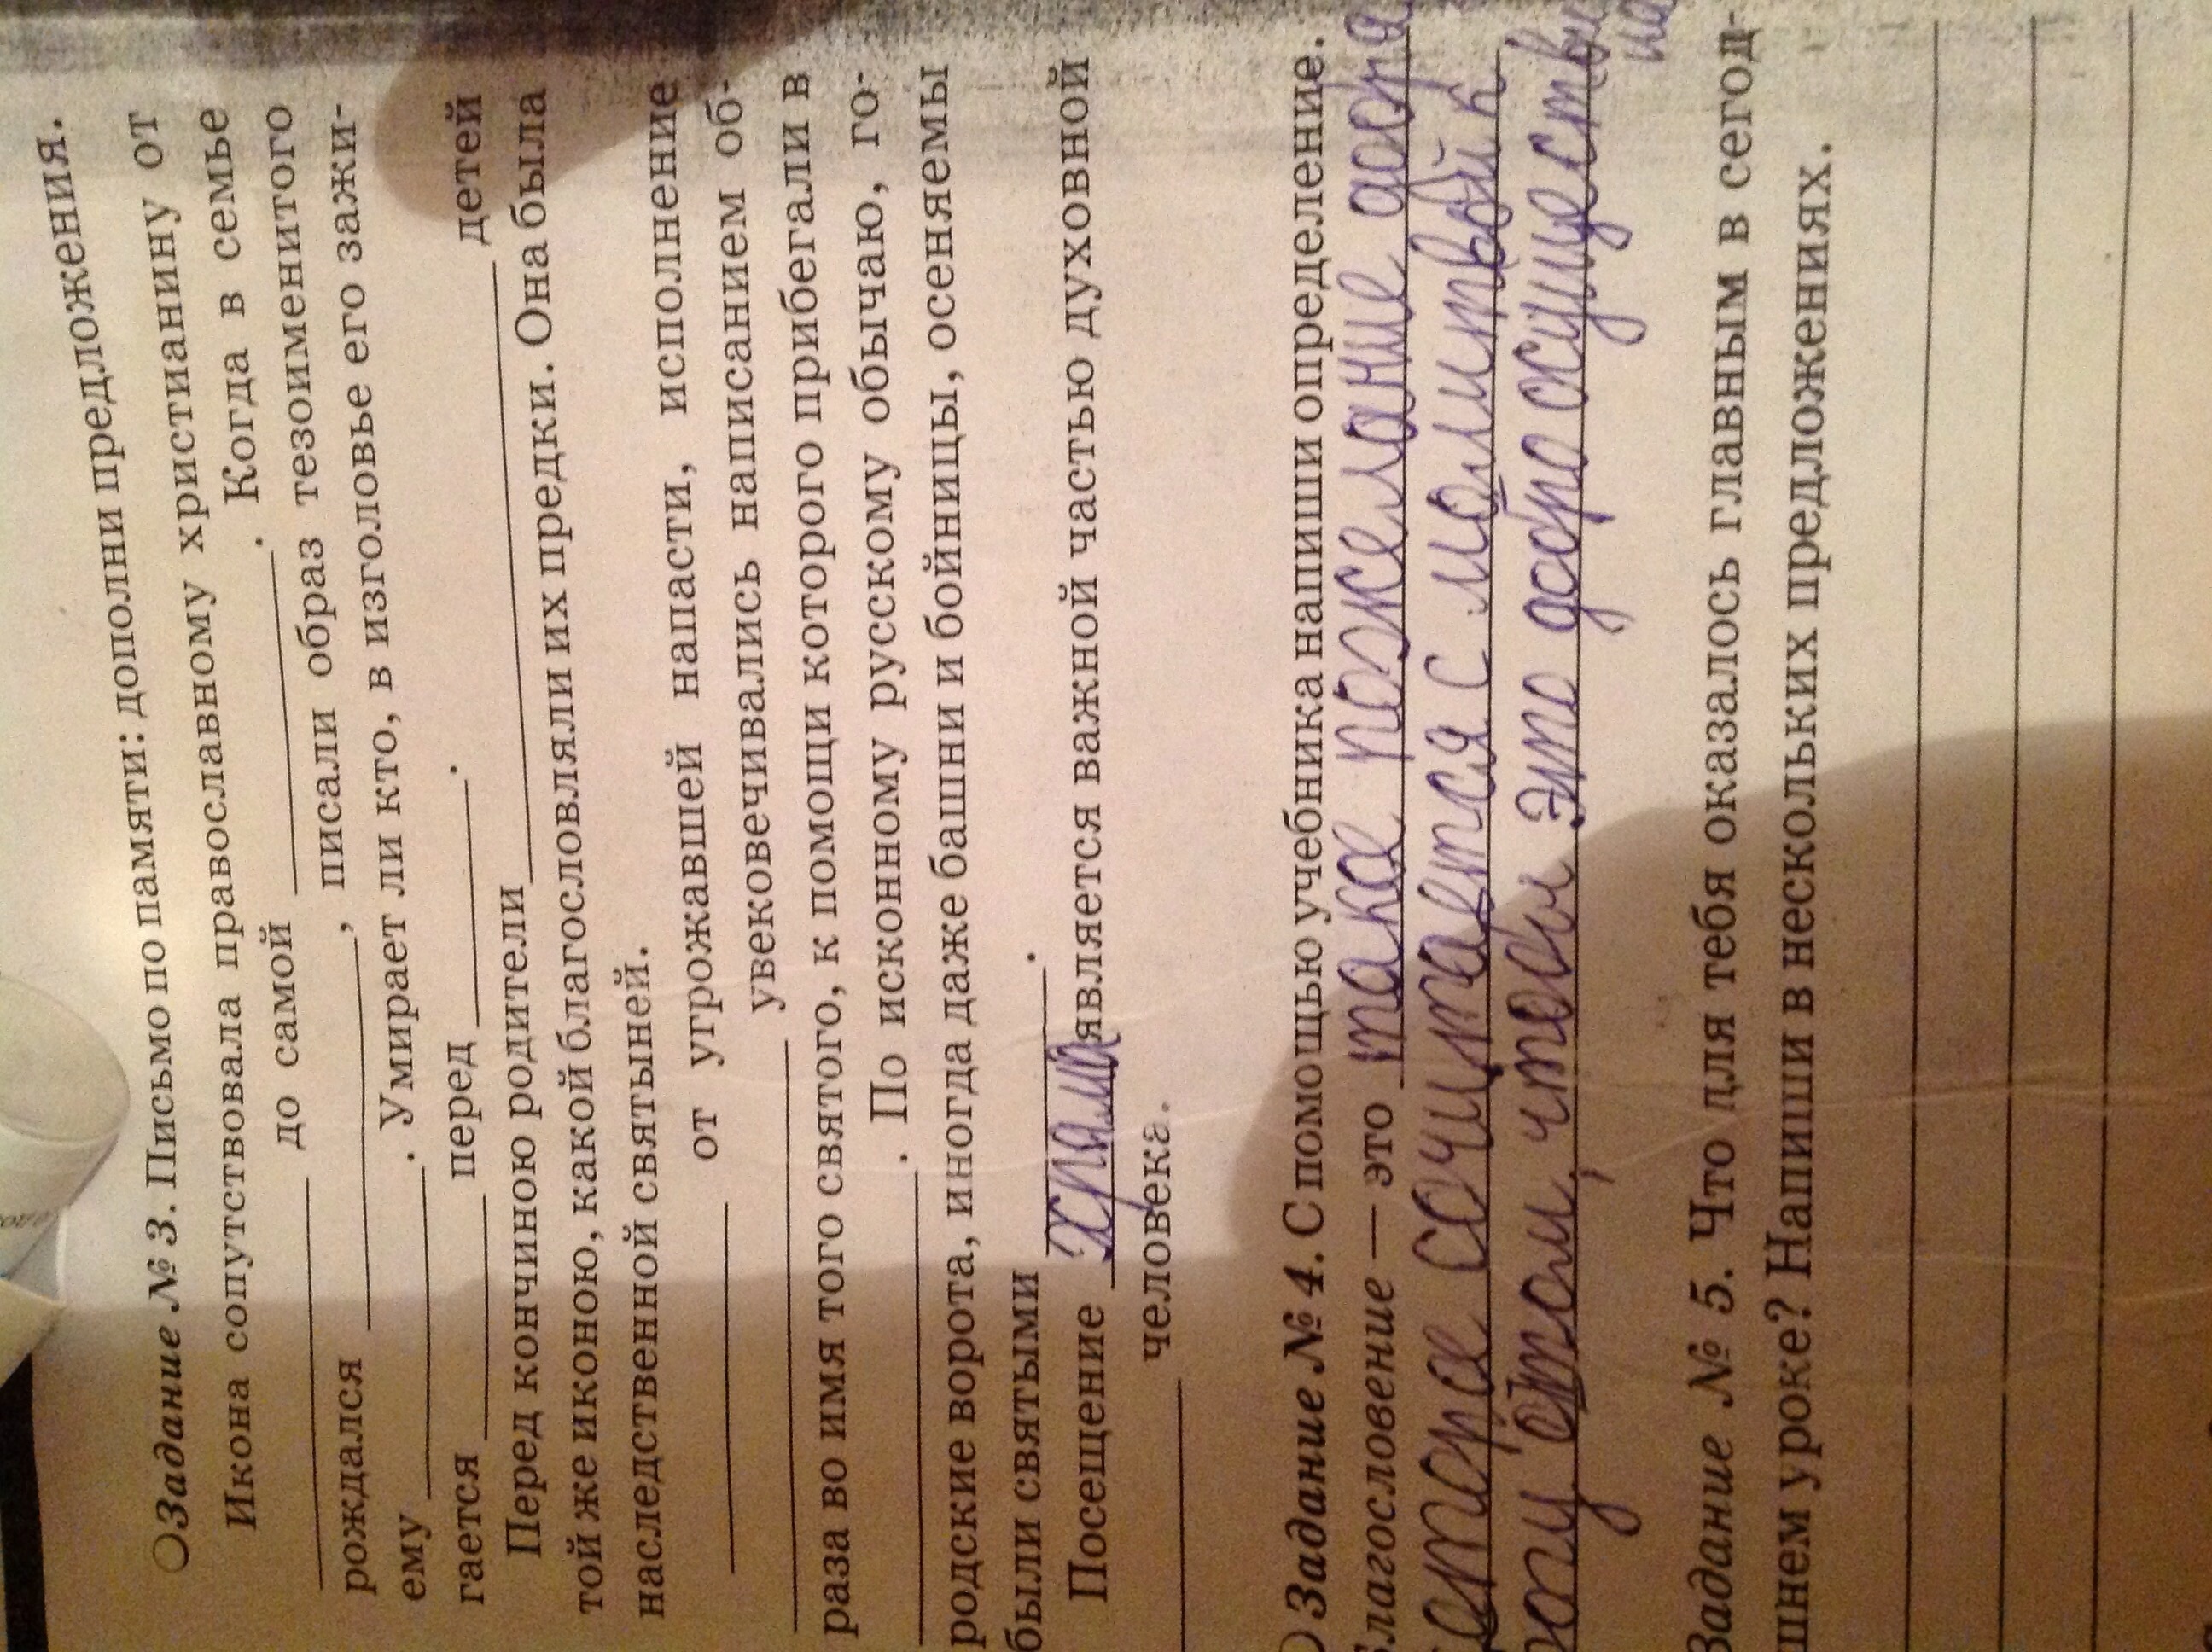 Задание № 3. Письмо по памяти: дополни предложения.
Икона сопутствовала православному христианину от
до самой . Когда в семье
рождался , писали образ тезоименитого
ему . Умирает ли кто, в изголовье его зажи-
гается перед . детей
Перед кончиною родители
той же иконою, какой благословляли их предки. Она была
наследственной святыней.
от угрожавшей напасти, исполнение
увековечивались написанием об-
раза во имя того святого, к помощи которого прибегали в
. По исконному русскому обычаю, го-
родские ворота, иногда даже башни и бойницы, осеняемы
были святыми .
Посещение храма является важной частью духовной
человека.
Задание № 4. С помощью учебника напиши определение.
Благословение — это такое пожелание добра
которое сочитается с молитвой к
богу отом, чтобы это добро осуществи
Задание № 5. Что для тебя оказалось главным в сегод-
шнем уроке? Напиши в нескольких предложениях.